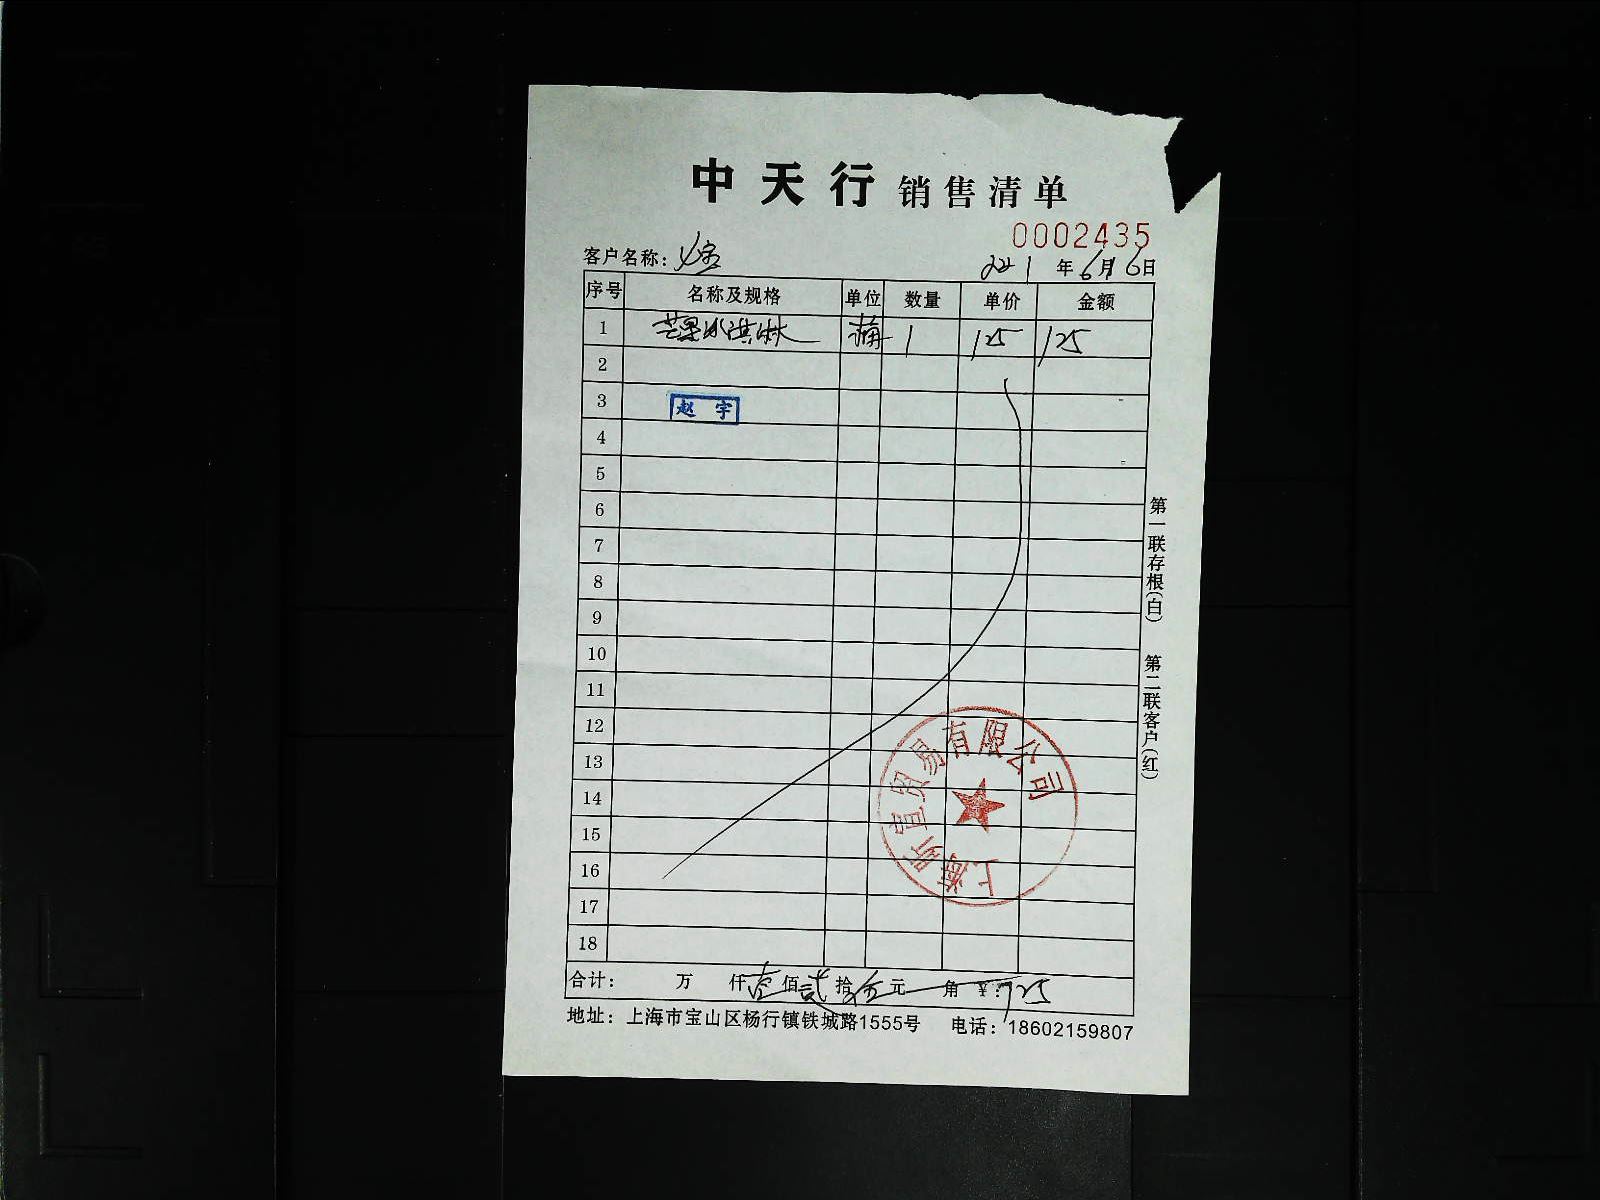 中天行 销售清单
0002435
客户名称：
2021年6月16日
序号 名称及规格 单位 数量 单价 金额
1 芒果冰淇淋 桶 1 125 125
2
3 赵宇
4
5
6
7
8
9
10
11
12
13
14
15
16
17
18
上海昕宣贸易有限公司
合计： 万 仟壹佰贰拾伍元 角 ¥：125
地址：上海市宝山区杨行镇铁城路1555号 电话：18602159807
第一联存根(白)
第二联客户(红)